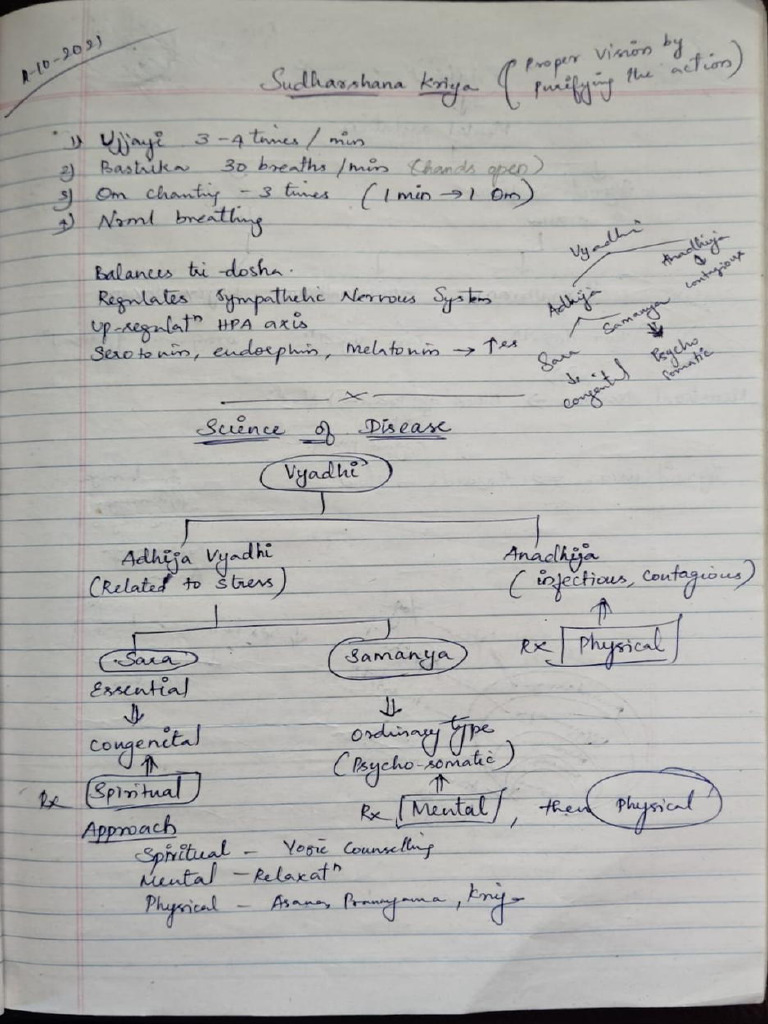 -10-2021
Sudharshana Kriya (Proper vision by
purifying the action)
1) Ujjayi 3-4 times/min
2) Bastrika 30 breaths/min (hands open)
3) Om chantig - 3 times (1 min → 1 Om)
4) Nrml breathing
Balances tri-dosha.
Regulates Sympathetic Nervous System
Up-regulatⁿ HPA axis
Serotonin, endorphin, Melatonin → ↑es
Vyadhi
Adhija
Anadhija
↓
contagious
Sara
↓
congenital
Samanya
↓
Psycho
somatic
x
Science of Disease
Vyadhi
Adhija Vyadhi Anadhija
(Related to stress) (infectious, contagious)
⇑
Rx Physical
Sara Samanya
Essential
⇓ ⇓
Congenital Ordinary type
⇑ (Psycho-somatic)
Rx Spiritual ⇑
Rx Mental, then Physical
Approach
Spiritual - Yogic Counselling
Mental - Relaxatⁿ
Physical - Asanas, Pranayama,